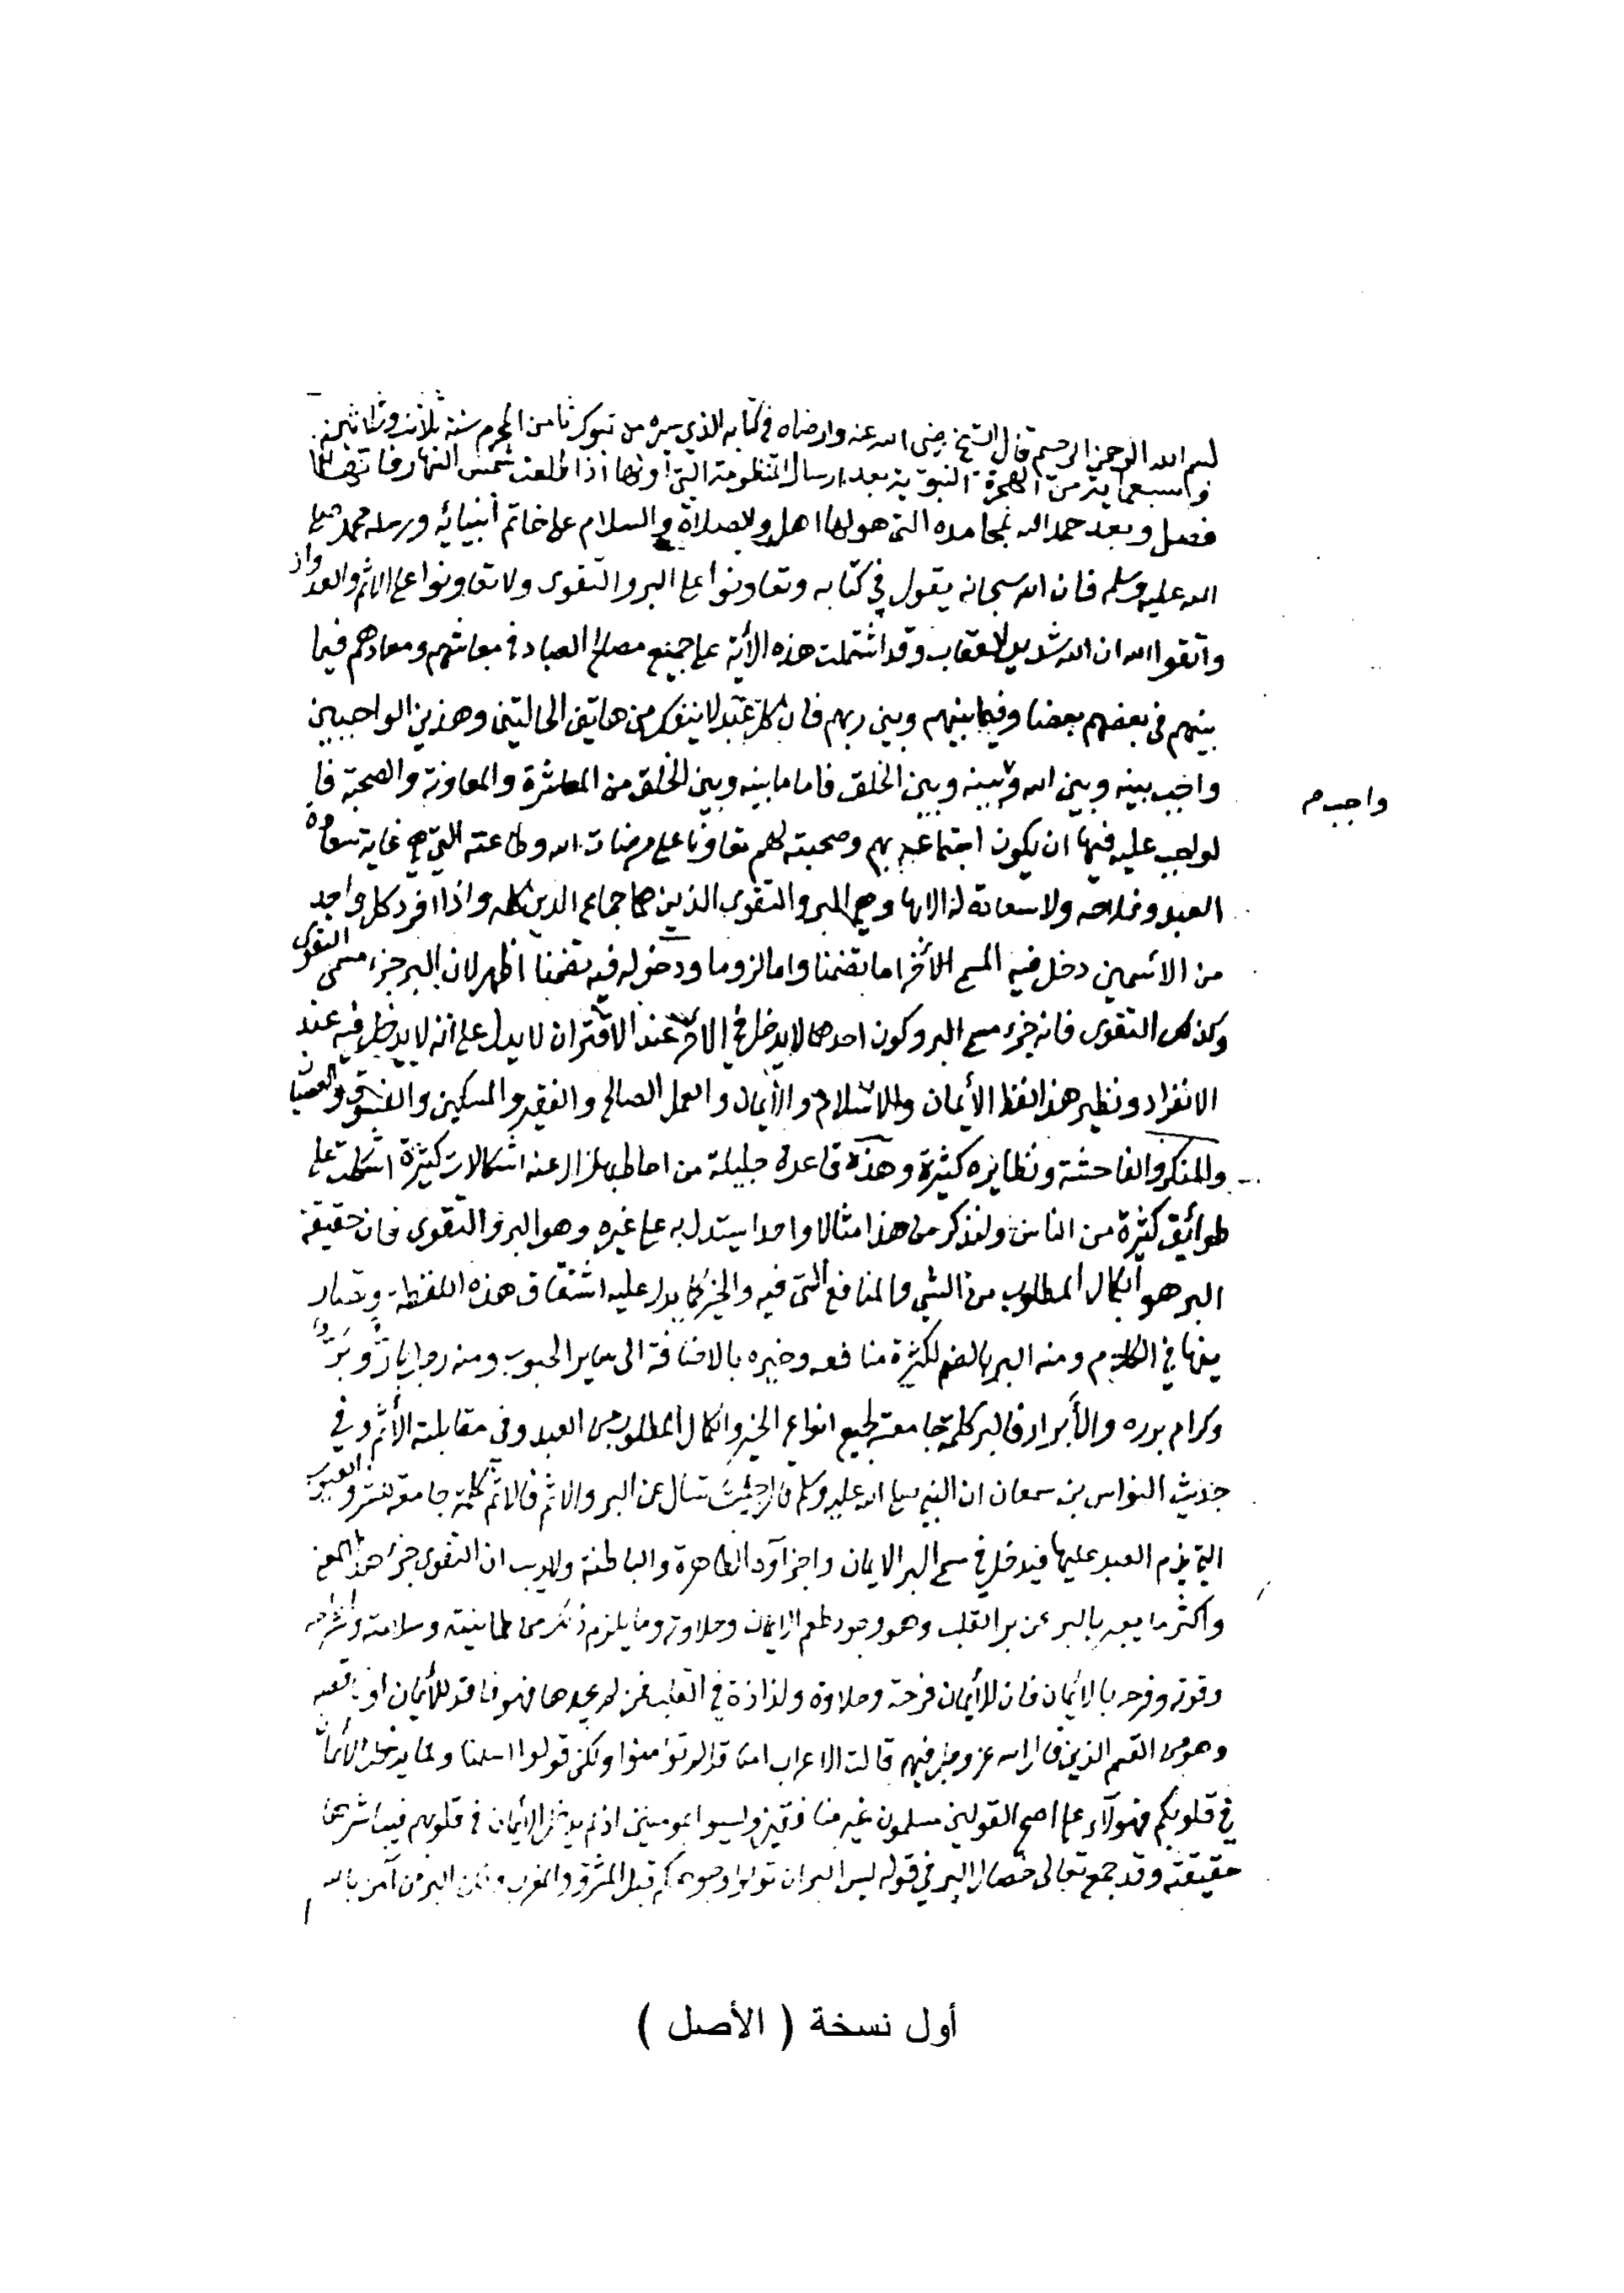 بسم الله الرحمن الرحيم قال الشيخ رضى الله عنه وارضاه في كتابه الذي سيره من تبوك ثامن المحرم سنة ثلاث وثلاثين
وسبعماية من الهجرة النبوية بعد ارسال المنظومة التي اولها اذا طلعت شمس النهار فانها
فصل وبعد حمد الله بمحامده التى هو لها اهل والصلاة والسلام على خاتم أنبيائه ورسله محمد صلى
الله عليه وسلم فان الله سبحانه يقول في كتابه وتعاونوا على البر والتقوى ولا تعاونوا على الاثم والعدوان
واتقوا الله ان الله شديد العقاب وقد اشتملت هذه الأية على جميع مصالح العباد في معاشهم ومعادهم فيما
بينهم في بعضهم بعضا وفيما بينهم وبين ربهم فان كل عبد لا ينفك من هاتين الحالتين وهذين الواجبين
واجب بينه وبين الله وبينه وبين الخلق فاما ما بينه وبين الخلق من المعاشرة والمعاونة والصحبة فا
واجب م
لواجب عليه فيها ان يكون اجتماعه بهم وصحبته لهم تعاونا على مرضات الله وطاعته التي هي غاية سعادة
العبد وفلاحه ولا سعادة له الا بها وهي البر والتقوى الذين هما جماع الدين كله واذا افرد كل واحد
من الاسمين دخل فيه المسمى الأخر اما تضمنا واما لزوما ودخوله فيه تضمنا اظهر لان البر جزء مسمى التقوى
وكذلك التقوى فانه جزء مسمى البر وكون احدهما لا يدخل في الاخر عند الاقتران لا يدل على انه لا يدخل فيه عند
الانفراد ونظير هذا لفظ الأيمان والاسلام والأيمان والعمل الصالح والفقير والمسكين والفسوق والعصيان
والمنكر والفاحشة ونظايره كثيرة وهذه قاعدة جليلة من احاط بها زال عنه اشكالات كثيرة اشكلت على
طوائق كثيرة من الناس ولنذكر من هذا مثالا واحدا يستدل به على غيره وهو البر والتقوى فان حقيقة
البر هو الكمال المطلوب من الشي والمنافع التي فيه والخير كما يدل عليه اشتقاق هذه اللفظة وتصار
يفها في الكلام ومنه البر بالضم لكثرة منافعه وخيره بالاضافة الى ساير الحبوب ومنه رجل بارٌّ وبَرٌّ
وكرام برره والأبرار فالبر كلمة جامعة لجميع انواع الخير والكمال المطلوب من العبد وفى مقابلته الأثم وفي
حديث النواس بن سمعان ان النبي صلى الله عليه وسلم قال جئت تسال عن البر والاثم فالاثم كلمة جامعة للشر والعيوب
التي يذم العبد عليها فيدخل في مسمى البر الايمان واجزآؤه الظاهرة والباطنة ولا ريب ان التقوى جزء هذا المعنى
وأكثر ما يعبر بالبر عن بر القلب وهو وجود طعم الايمان وحلاوته وما يلزم ذلك من طمانينته وسلامته وانشراحه
وقوته وفرحه بالايمان فان للأيمان فرحة وحلاوة ولذاذة في القلب فمن لم يجدها فهو فاقد للأيمان او ناقصه
وهو من القسم الذين قال الله عز وجل فيهم قالت الاعراب امنا قل لم تؤمنوا ولكن قولوا اسلمنا ولما يدخل الأيمان
في قلوبكم فهولآء على اصح القولين مسلمون غير منافقين وليسوا بمومنين اذ لم يدخل الأيمان في قلوبهم فيباشرها
حقيقته وقد جمع تعالى خصال البر في قوله ليس البر ان تولوا وجوهكم قبل المشرق والمغرب ولكن البر من آمن بالله
أول نسخة ( الأصل )